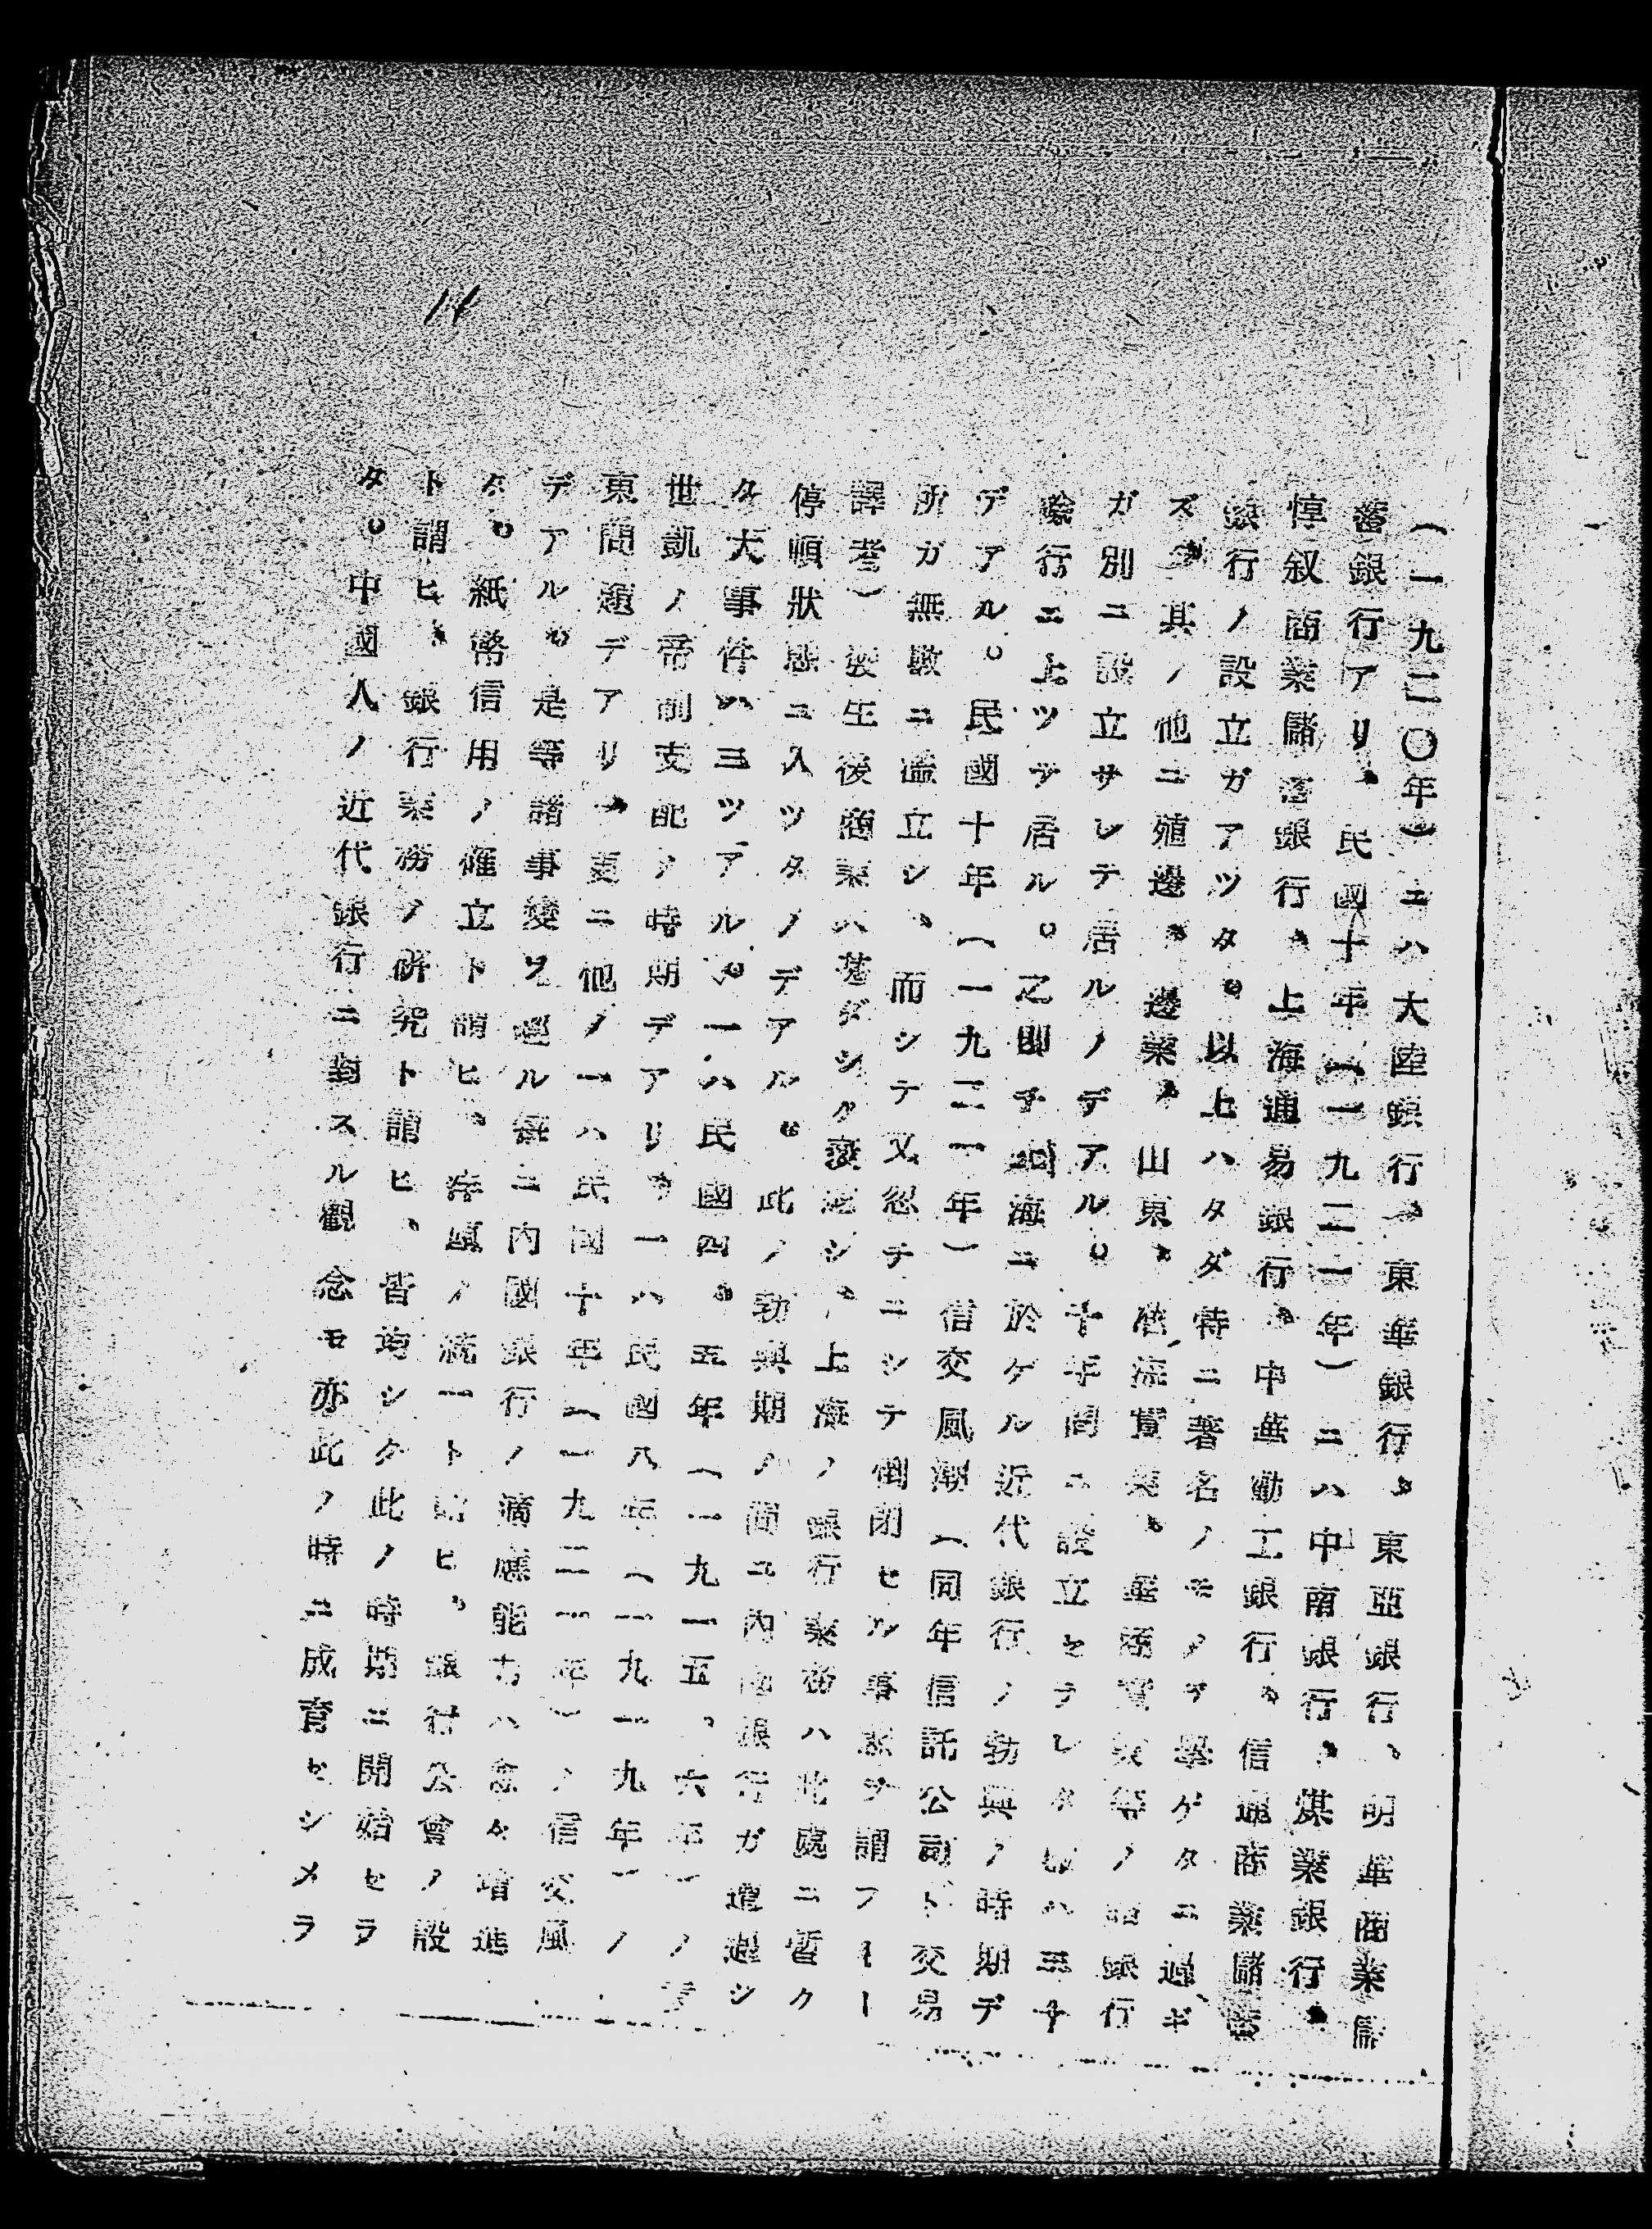 14
(一九二〇年)ニハ大陸銀行、東華銀行、東亞銀行、明華商業儲
蓄銀行アリ、民國十年(一九二一年)ニハ中南銀行、煤業銀行、
惇叙商業儲蓄銀行、上海通易銀行、中華勸工銀行、信通商業儲蓄
銀行ノ設立ガアツタ。以上ハタダ特ニ著名ノモノヲ擧ゲタニ過ギ
ズ、其ノ他ニ殖邊、邊業、山東、實業、等ノ諸銀行
ガ別ニ設立サレテ居ルノデアル。十年間ニ設立セラレタルハ三十
餘行ニ上ツテ居ル。之即チ上海ニ於ケル近代銀行ノ勃興ノ時期デ
デアル。民國十年(一九二一年)信交風潮(同年信託公司ト交易
所ガ無數ニ濫立シ、而シテ又忽チニシテ倒閉セル事ヲ謂フ ー
譯者)發生後商業ハ甚ダシク衰シ、上海ノ銀行業務ハ此處ニ暫ク
停頓狀態ニ入ツタノデアル。此ノ勃興期ノ間ニ内國銀行ガ遭遇シ
タ大事件ハ三ツアル。一ハ民國四、五年(一九一五、六年)ノ
世凱ノ帝制支配ノ時期デアリ、一ハ民國八年(一九一九年)ノ
東問題デアリ、更ニ他ノ一ハ民國十年(一九二一年)ノ信交風
デアル。是等諸事變ヲ過ル每ニ内國銀行ノ適應能力ハ益々增進
タ。紙幣信用ノ確立ト謂ヒ、ノ統一ト謂ヒ、銀行公會ノ設
ト謂ヒ、銀行業務ノ研究ト謂ヒ、皆均シク此ノ時期ニ開始セラ
タ。中國人ノ近代銀行ニ對スル觀念モ亦此ノ時ニ成育セシメラ